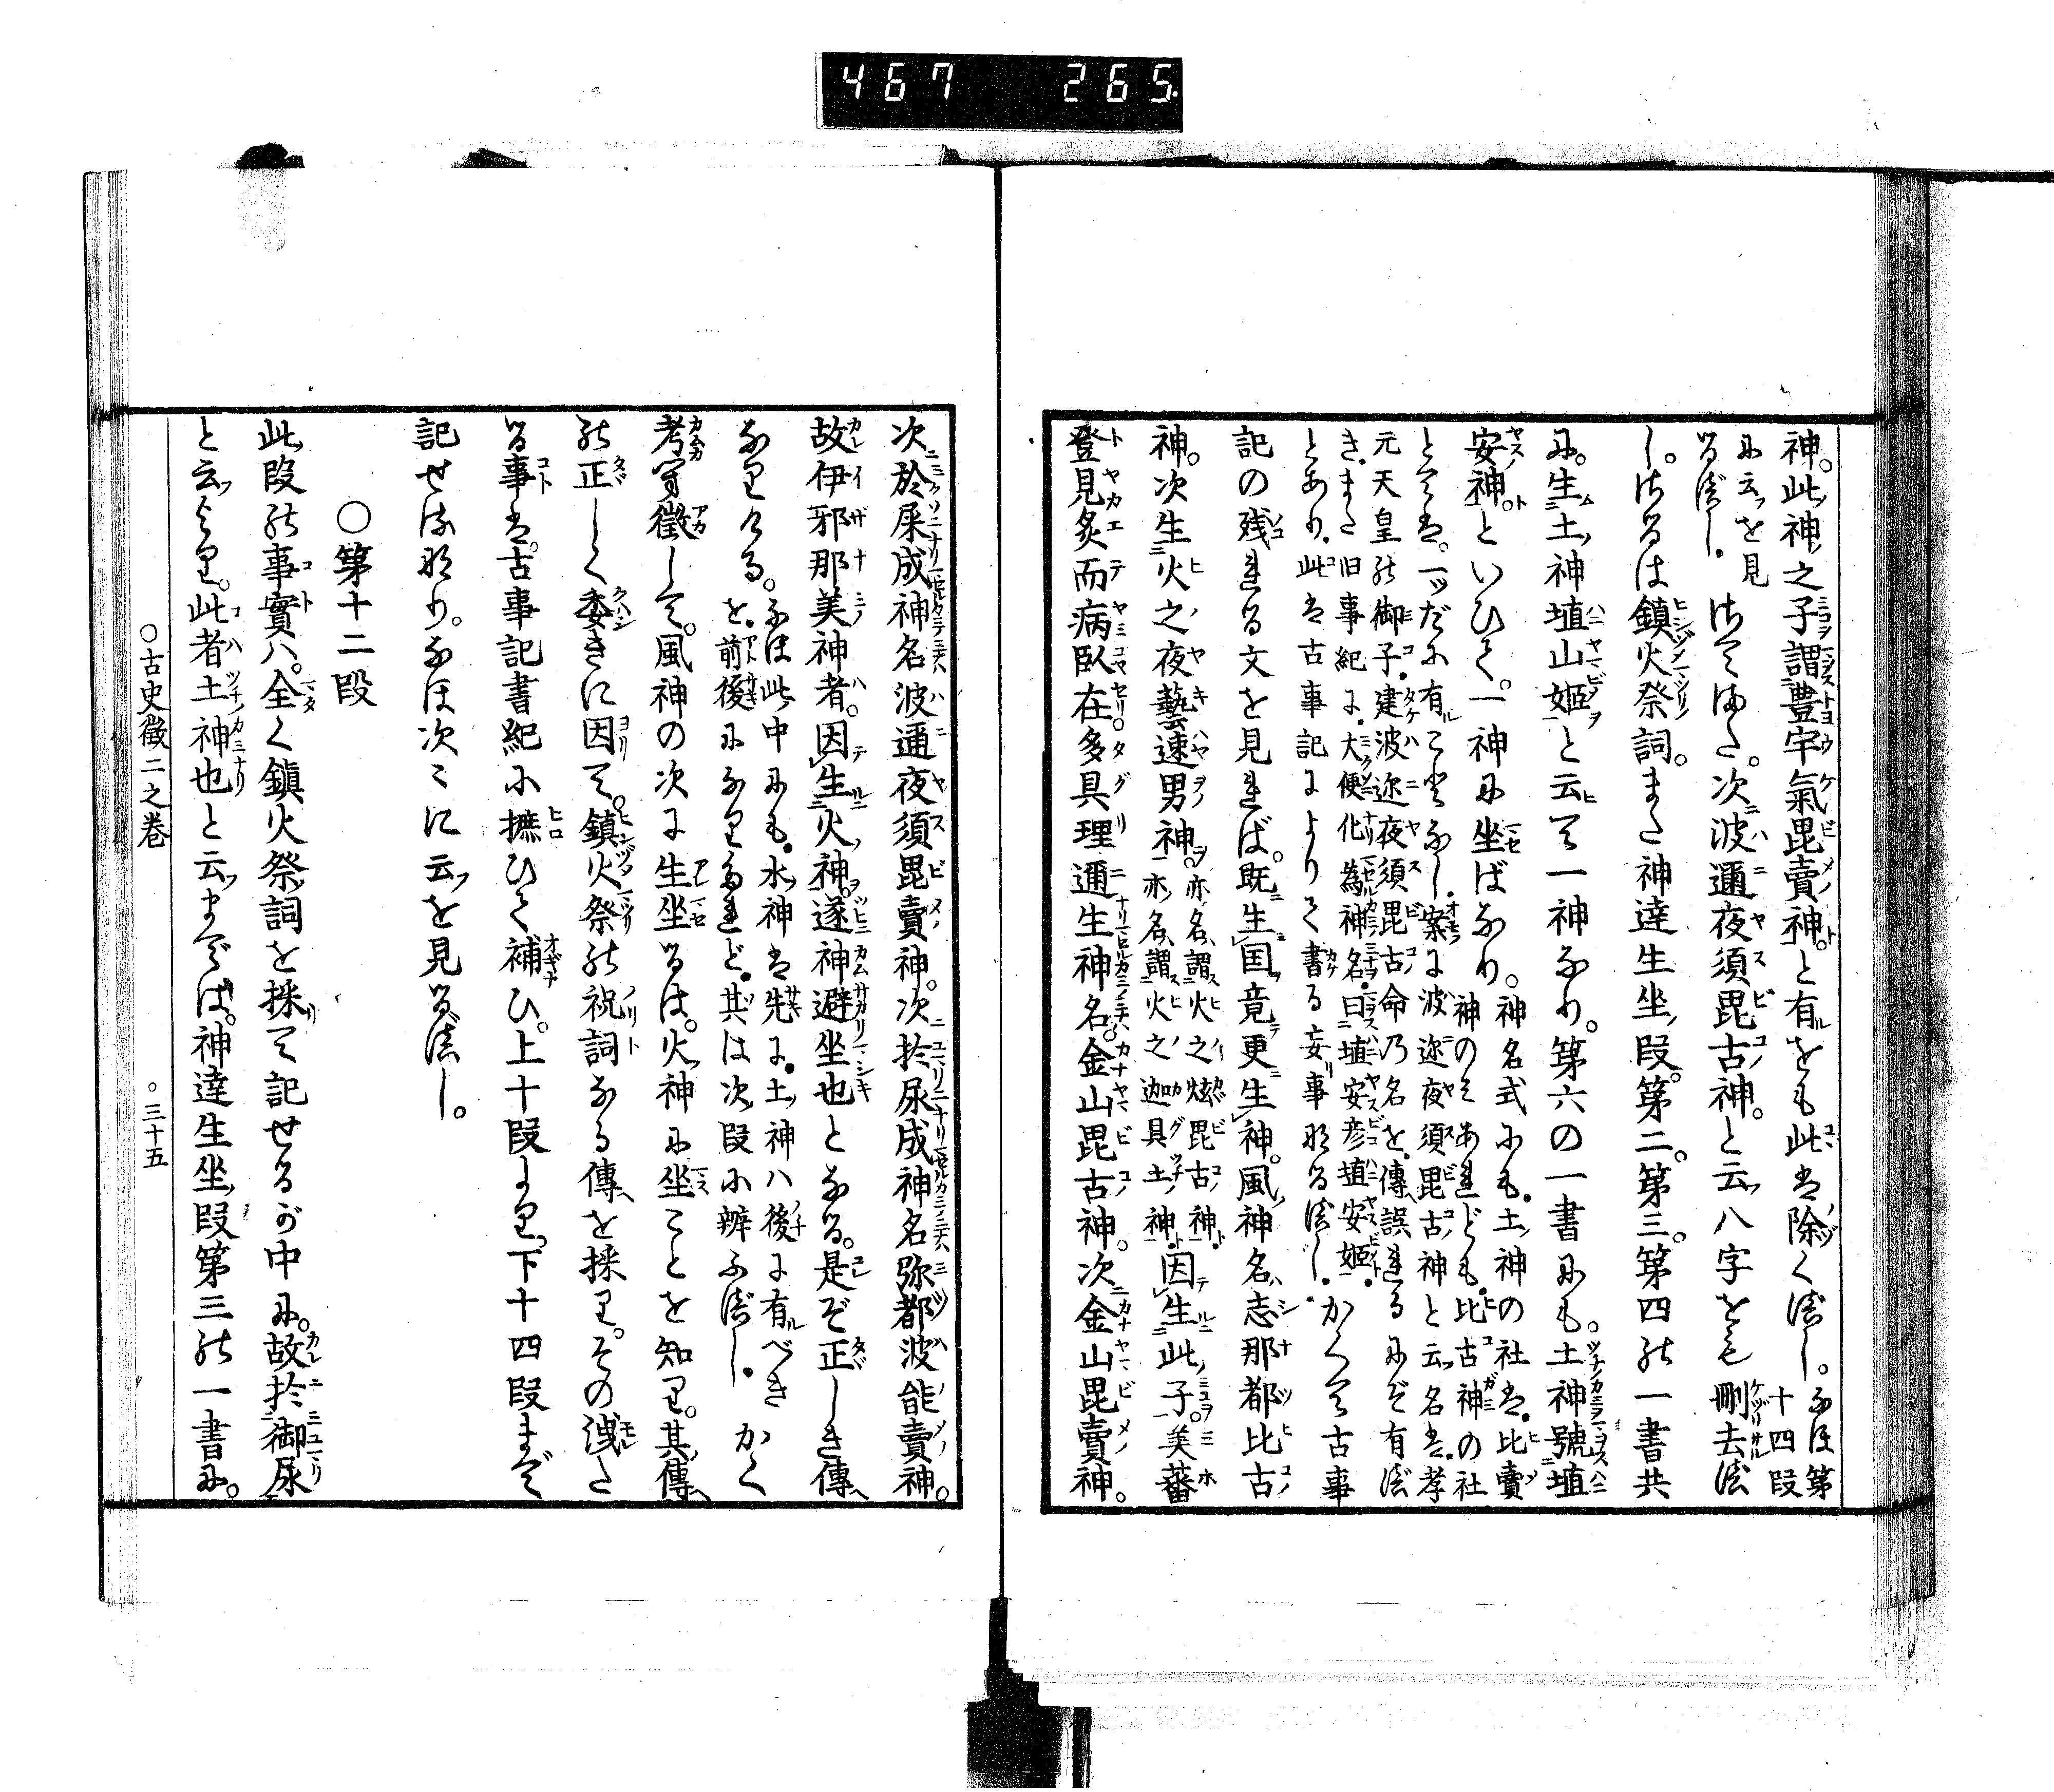 467 265.
神。此神之子謂豊宇氣毘賣神。と有をも此は除く べし。なほ第十四段
に云を見るべし。さてまた。次波邇夜須毘古神。と云八字をも刪去べ
し。さるは鎮火祭詞。また神達生坐段。第二。第三。第四の一書共
に。生土神埴山姫と云て一神なり。第六の一書にも。土神號埴
安神。といひて。一神に坐ばなり。神名式にも。土神の社は。比賣神のみあれども。比古神の社
とては。一ッだに有ことなし。案に波迩夜須毘古神と云名は。孝
元天皇の御子。建波迩夜須毘古命乃名を。傳誤れるにぞ有べ
き。また旧事紀に。大便化為神名。曰埴安彦埴安姫。
とあり。此は古事記によりて書る妄事なるべし。かくて古事
記の残れる文を見れば。既生国竟更生神。風神名志那都比古
神。次生火之夜藝速男神。亦名謂火之炫毘古神。亦名謂火之迦具土神。因生此子。美蕃
登見炙而病臥在多具理邇生神名。金山毘古神。次金山毘賣神。
次於屎成神名波邇夜須毘賣神。次於尿成神名弥都波能賣神。
故伊邪那美神者。因生火神。遂神避坐也となる。是ぞ正しき傳
なりける。なほ此中にも。水神は先に。土神ハ後に有べきを。前後になりたれど。其は次段に辨ふべし。かく
考写徴して。風神の次に生坐るは。火神に坐ことを知て。其傳
の正しく委きに因て。鎮火祭の祝詞なる傳を採て。その洩た
る事は。古事記書紀に摭ひて補ひ。上十段より。下十四段まで
記せるなり。なほ次々に云を見るべし。
〇第十二段
此段の事實ハ。全く鎮火祭詞を採て記せるが中に。故於御尿
と云より。此者土神也と云までは。神達生坐段第三の一書に。
○古史徴二之巻 ○三十五